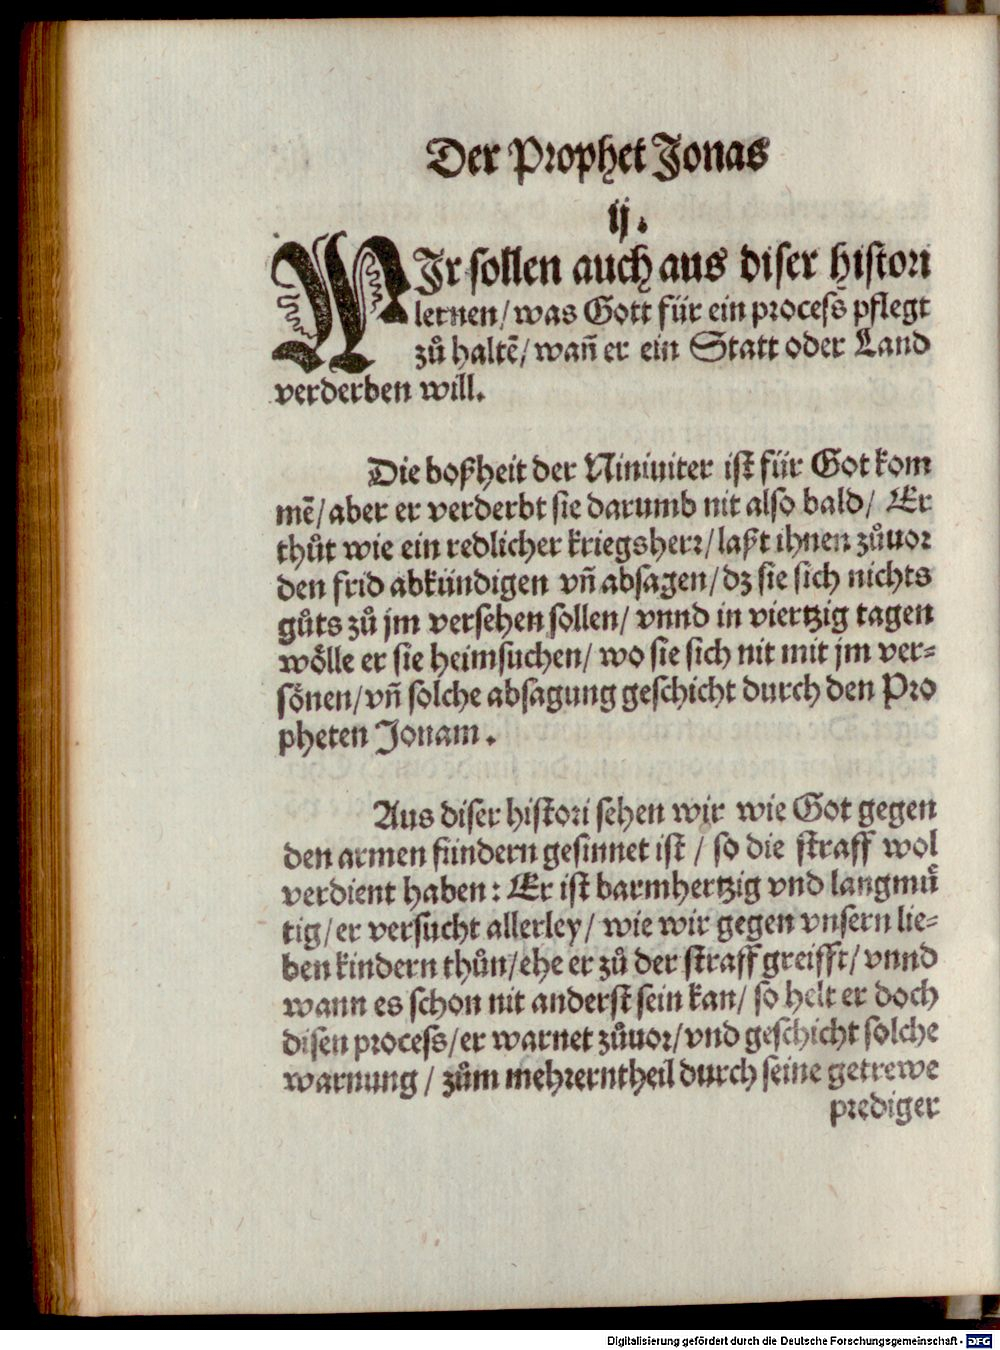 Der Prophet Jonas
ij.
WIr sollen auch aus diser histori
lernen/was Gott für ein process pflegt
zů haltē/wañ er ein Statt oder Land
verderben will.
Die boßheit der Niniuiter ist für Got kom
mē/aber er verderbt sie darumb nit also bald/ Er
thůt wie ein redlicher kriegsherr/laßt ihnen zůuor
den frid abkündigen vñ absagen/dz sie sich nichts
gůts zů jm versehen sollen/ vnnd in viertzig tagen
wölle er sie heimsuchen/ wo sie sich nit mit jm ver=
sönen/vñ solche absagung geschicht durch den Pro
pheten Jonam.
Aus diser histori sehen wir wie Got gegen
den armen sündern gesinnet ist / so die straff wol
verdient haben: Er ist barmhertzig vnd langmü
tig/er versucht allerley/ wie wir gegen vnsern lie=
ben kindern thůn/ehe er zů der straff greifft/ vnnd
wann es schon nit anderst sein kan/ so helt er doch
disen process/er warnet zůuor/vnd geschicht solche
warnung / zům mehrerntheil durch seine getrewe
prediger
Digitalisierung gefördert durch die Deutsche Forschungsgemeinschaft - DFG